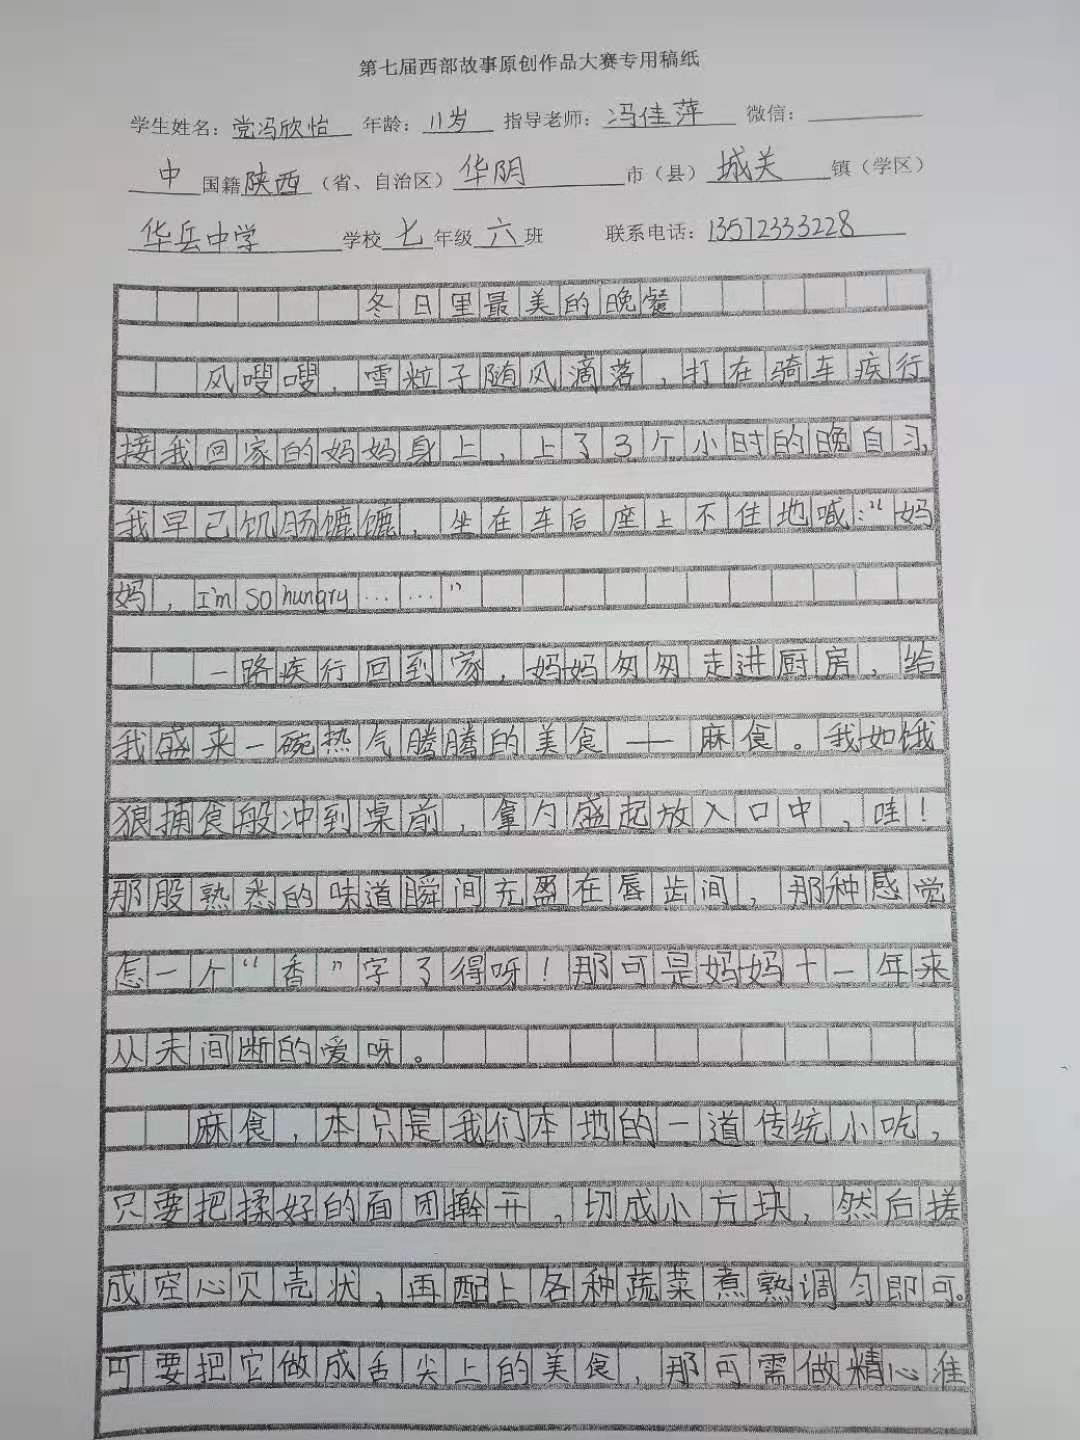 第七届西部故事原创作品大赛专用稿纸
学生姓名：党冯欣怡 年龄：11岁 指导老师：冯佳萍 微信：
中国籍陕西（省、自治区）华阴市（县）城关镇（学区）
华岳中学学校七年级六班 联系电话：13572333228
冬日里最美的晚餐
风嗖嗖，雪粒子随风滴落，打在骑车疾行
接我回家的妈妈身上，上了3个小时的晚自习，
我早已饥肠辘辘，坐在车后座上不住地喊：“妈
妈，I'm so hungry……”
一路疾行回到家，妈妈匆匆走进厨房，给
我盛来一碗热气腾腾的美食——麻食。我如饿
狼捕食般冲到桌前，拿勺盛起放入口中，哇！
那股熟悉的味道瞬间充盈在唇齿间，那种感觉
怎一个“香”字了得呀！那可是妈妈十一年来
从未间断的爱呀。
麻食，本只是我们本地的一道传统小吃，
只要把揉好的面团擀开，切成小方块，然后搓
成空心贝壳状，再配上各种蔬菜煮熟调匀即可。
可要把它做成舌尖上的美食，那可需做精心准